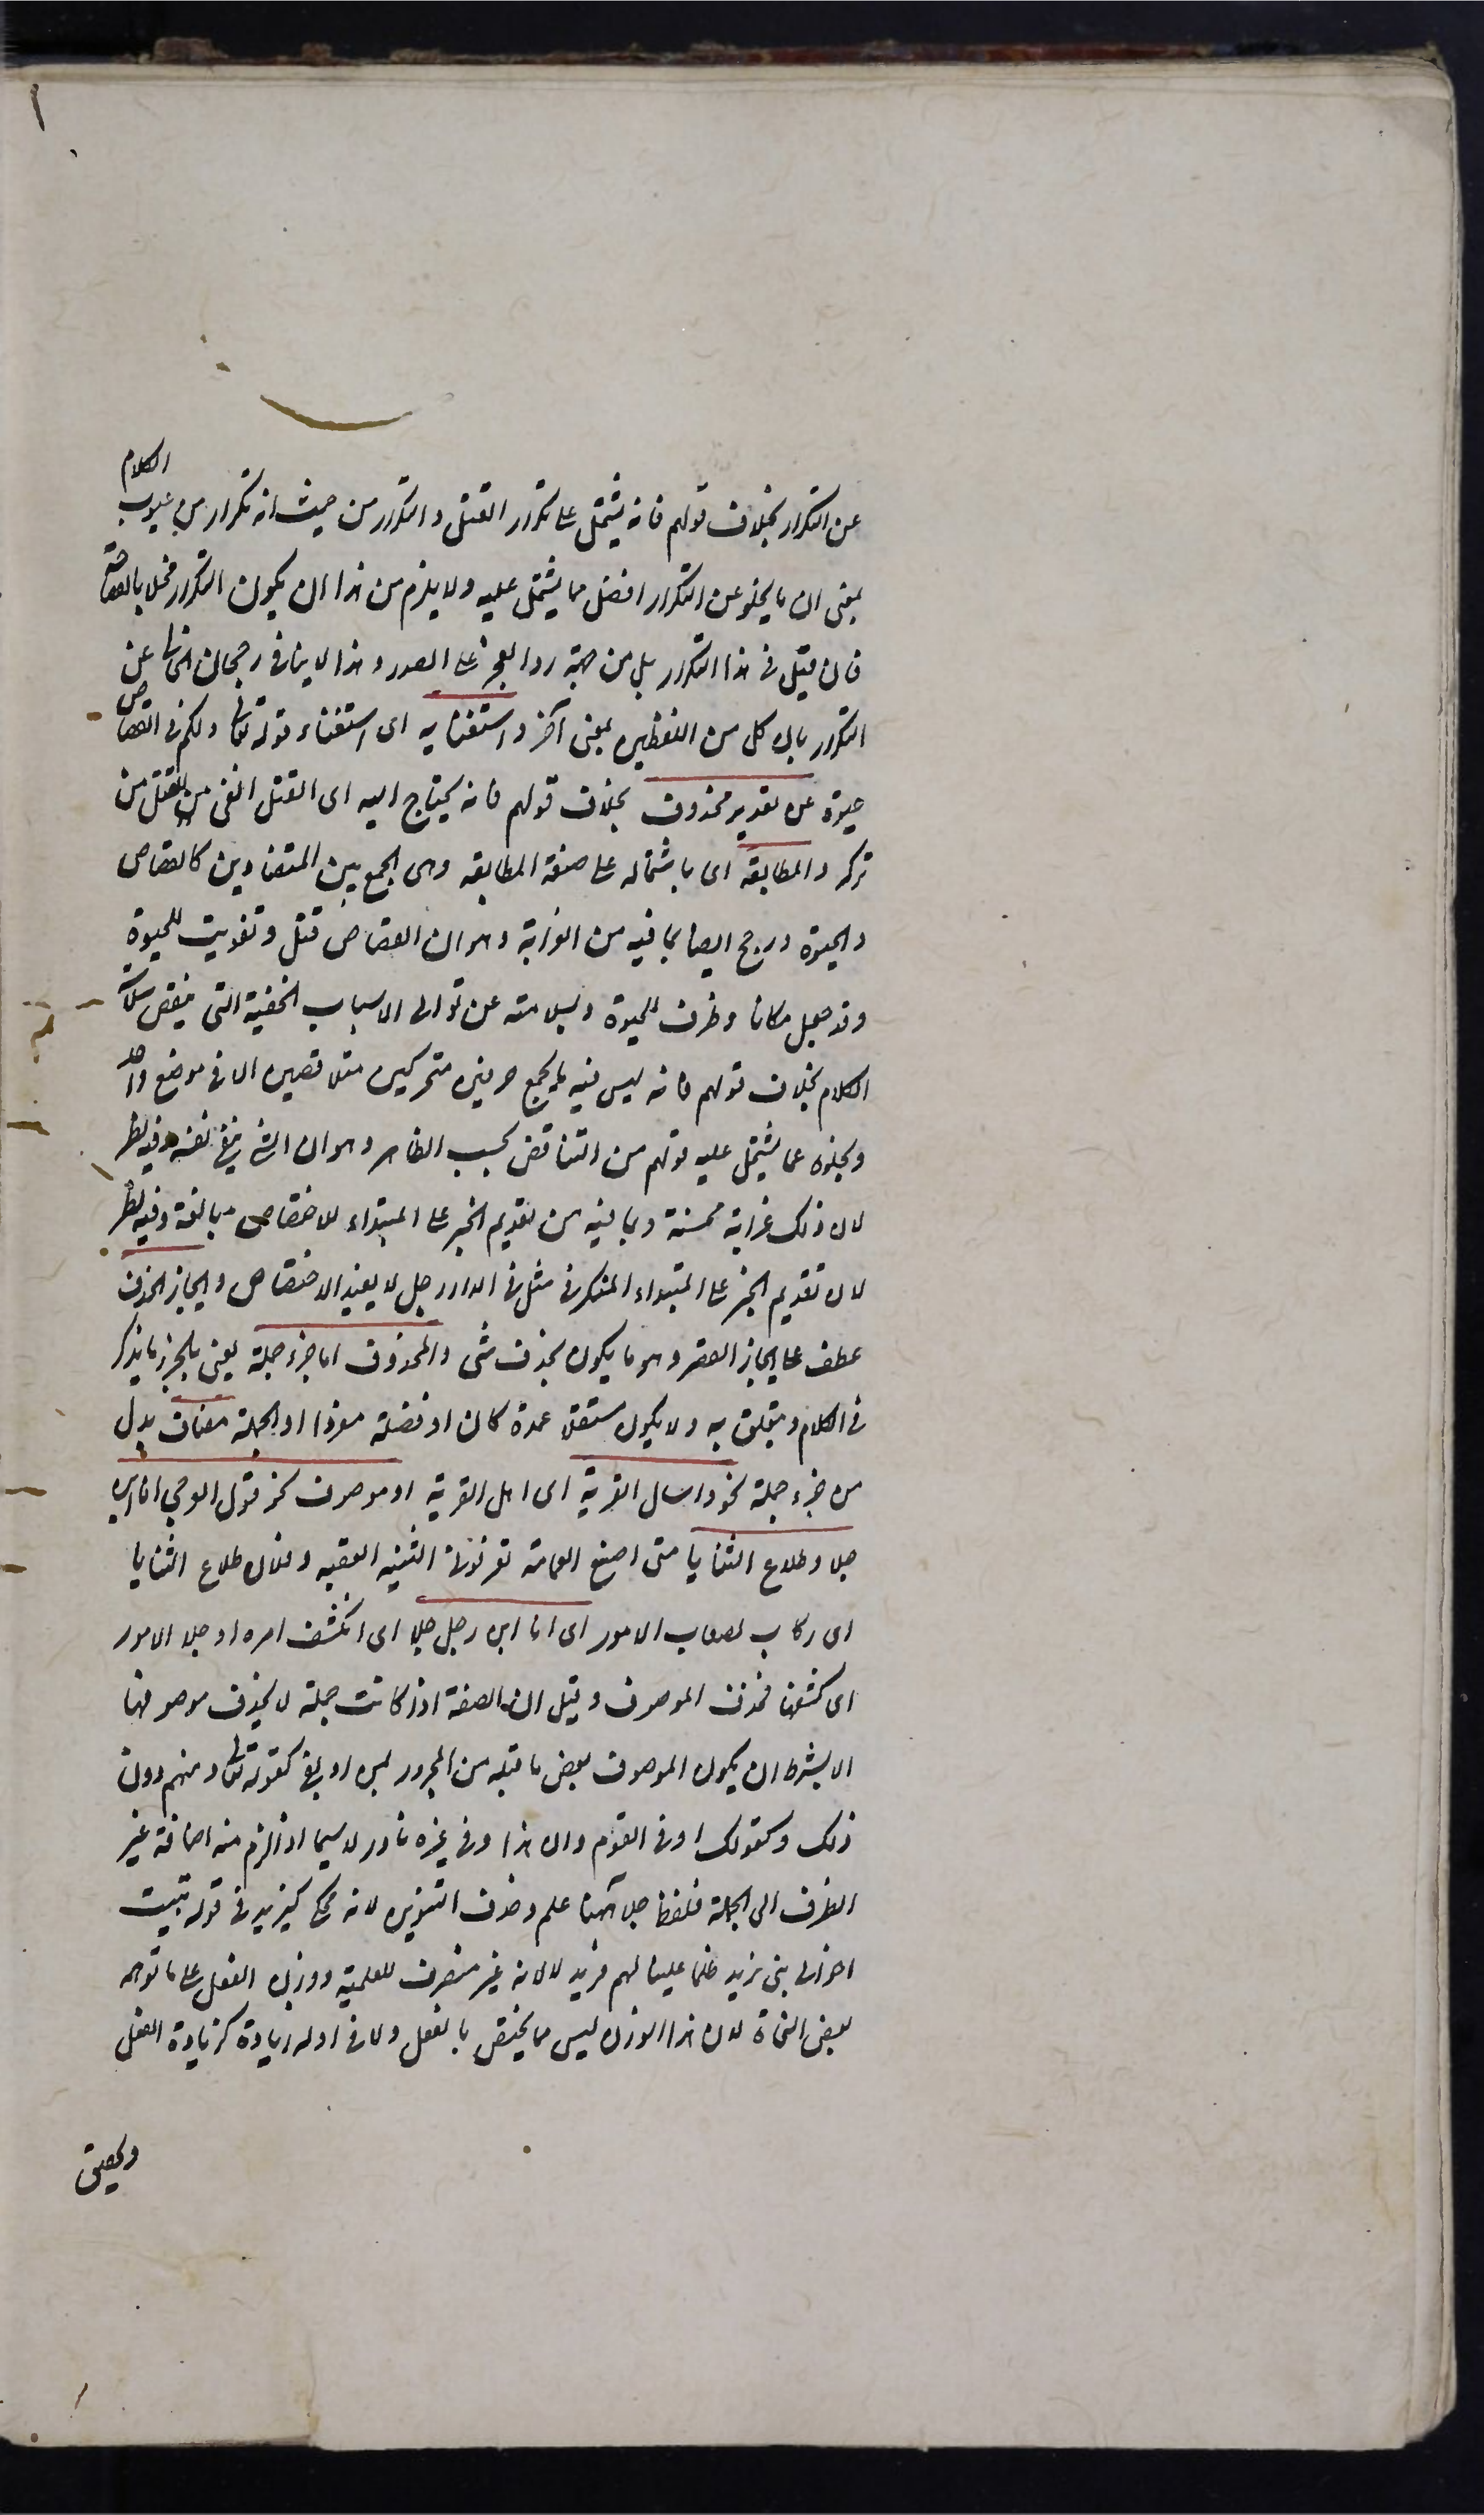 الكلام
عن التكرار بخلاف قولهم فانه يشتمل على تكرار القتل والتكرار من حيث انه تكرار من عيوب
بمعنى ان ما يخلو عن التكرار افضل مما يشتمل عليه ولا يلزم من هذا ان يكون التكرار مخلا بالفصاحة
فان قيل في هذا التكرار بل من جهة رد العجز على الصدر وهذا لا ينافي رجحان الخالي عن
التكرار بان كل من اللفظين بمعنى آخر واستغنائه اى استغناء قوله تعالى ولكم في القصاص
حيوة عن تقدير محذوف بخلاف قولهم فانه يحتاج اليه اى القتل انفى للقتل من
تركه والمطابقة اى باشتماله على صنعة المطابقه وهى الجمع بين المتضادين كالقصاص
والحيوة ورجح ايضا بما فيه من الغرابة وهو ان القصاص قتل وتفويت للحيوة
وقد جعل مكانا وظرفا للحيوة وبسلامته عن توالى الاسباب الخفيفة التى ينقص سلاسة
الكلام بخلاف قولهم فانه ليس فيه ما يجمع حرفين متحركين متلاقيين الا في موضع واحد
وبخلوه عما يشتمل عليه قولهم من التناقض بحسب الظاهر وهو ان الشئ ينفى نفسه وفيه نظر
لان ذلك غرابة محسنة وبما فيه من تقديم الخبر على المبتداء للاختصاص مبالغة وفيه نظر
لان تقديم الخبر على المبتداء المنكر في مثل في الدار رجل لا يفيد الاختصاص وايجاز الحذف
عطف على ايجاز القصر وهو ما يكون بحذف شئ والمحذوف اما جزء جملة يعنى بالجزء ما يذكر
في الكلام ويتعلق به ولا يكون مستقلا عمدة كان او فضلة مفردا او جملة مضاف بدل
من جزء جملة نحو واسال القرية اى اهل القرية او موصوف نحو قول العرجي انا ابن
جلا وطلاع الثنايا متى اضع العمامة تعرفونى الثنية العقبه وفلان طلاع الثنايا
اى ركاب لصعاب الامور اى انا ابن رجل جلا اى انكشف امره او جلا الامور
اى كشفها فحذف الموصوف وقيل ان الصفة اذا كانت جملة لا يحذف موصوفها
الا بشرط ان يكون الموصوف بعض ما قبله من المجرور بمن او بفي كقوله تعالى ومنهم دون
ذلك وكقولك او في القوم دون هذا وفي غيره نادر لا سيما اذا لزم منه اضافة غير
الظرف الى الجملة فلفظ جلا ههنا علم وحذف التنوين لانه محكي كيزيد في قوله نبيت
اخوالى بنى يزيد ظلما علينا لهم فديد لا لانه غير منصرف للعلمية ووزن الفعل على ما توهم
بعض النحاة لان هذا الوزن ليس مما يختص بالفعل ولا في اوله زيادة كزيادة الفعل